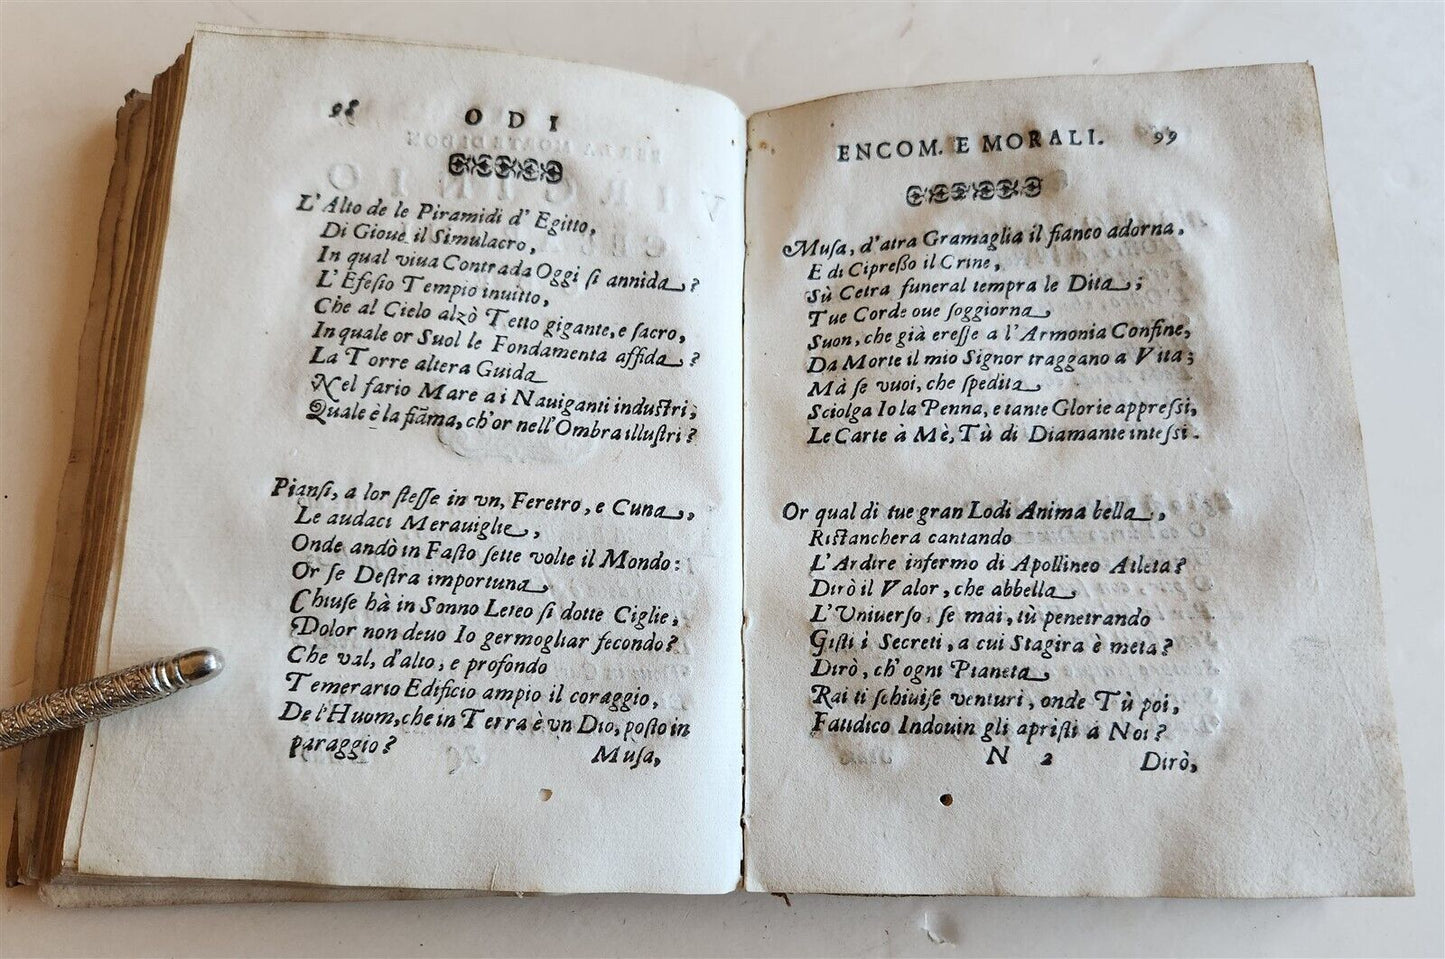 98 ODI
L'Alto de le Piramidi d' Egitto,
Di Gioue il Simulacro,
In qual viua Contrada Oggi ſi annida?
L'Efeſio Tempio inuitto,
Che al Cielo alzò Tetto gigante, e ſacro,
In quale or Suol le Fondamenta affida?
La Torre altera Guida
Nel fario Mare a i Nauiganti induſtri;
Quale è la fiãma, ch'or nell'Ombra illuſtri?
Pianſi, a lor ſteſſe in vn, Feretro, e Cuna,
Le audaci Merauiglie,
Onde andò in Faſto ſette volte il Mondo:
Or ſe Deſtra importuna
Chiuſe hà in Sonno Leteo ſi dotte Ciglie,
Dolor non deuo Io germogliar fecondo?
Che val, d'alto, e profondo
Temerario Edificio ampio il coraggio,
De l'Huom, che in Terra è vn Dio, poſto in
paraggio?
Muſa,
ENCOM. E MORALI. 99
Muſa, d'atra Gramaglia il fianco adorna,
E di Cipreßo il Crine,
Sù Cetra funeral tempra le Dita;
Tue Corde oue ſoggiorna
Suon, che già ereſſe a l'Armonia Confine,
Da Morte il mio Signor traggano a Vita;
Mà ſe vuoi, che ſpedita
Sciolga Io la Penna, e tante Glorie appreſſi,
Le Carte à Mè, Tù di Diamante inteſſi.
Or qual di tue gran Lodi Anima bella,
Riſtancherà cantando
L'Ardire infermo di Apollineo Atleta?
Dirò il Valor, che abbella
L'Vniuerſo, ſe mai, tù penetrando
Giſti i Secreti, a cui Stagira è meta?
Dirò, ch'ogni Pianeta
Rai ti ſchiuiſe venturi, onde Tù poi,
Fatidico Indouin gli apriſti à Noi?
N 2 Dirò,